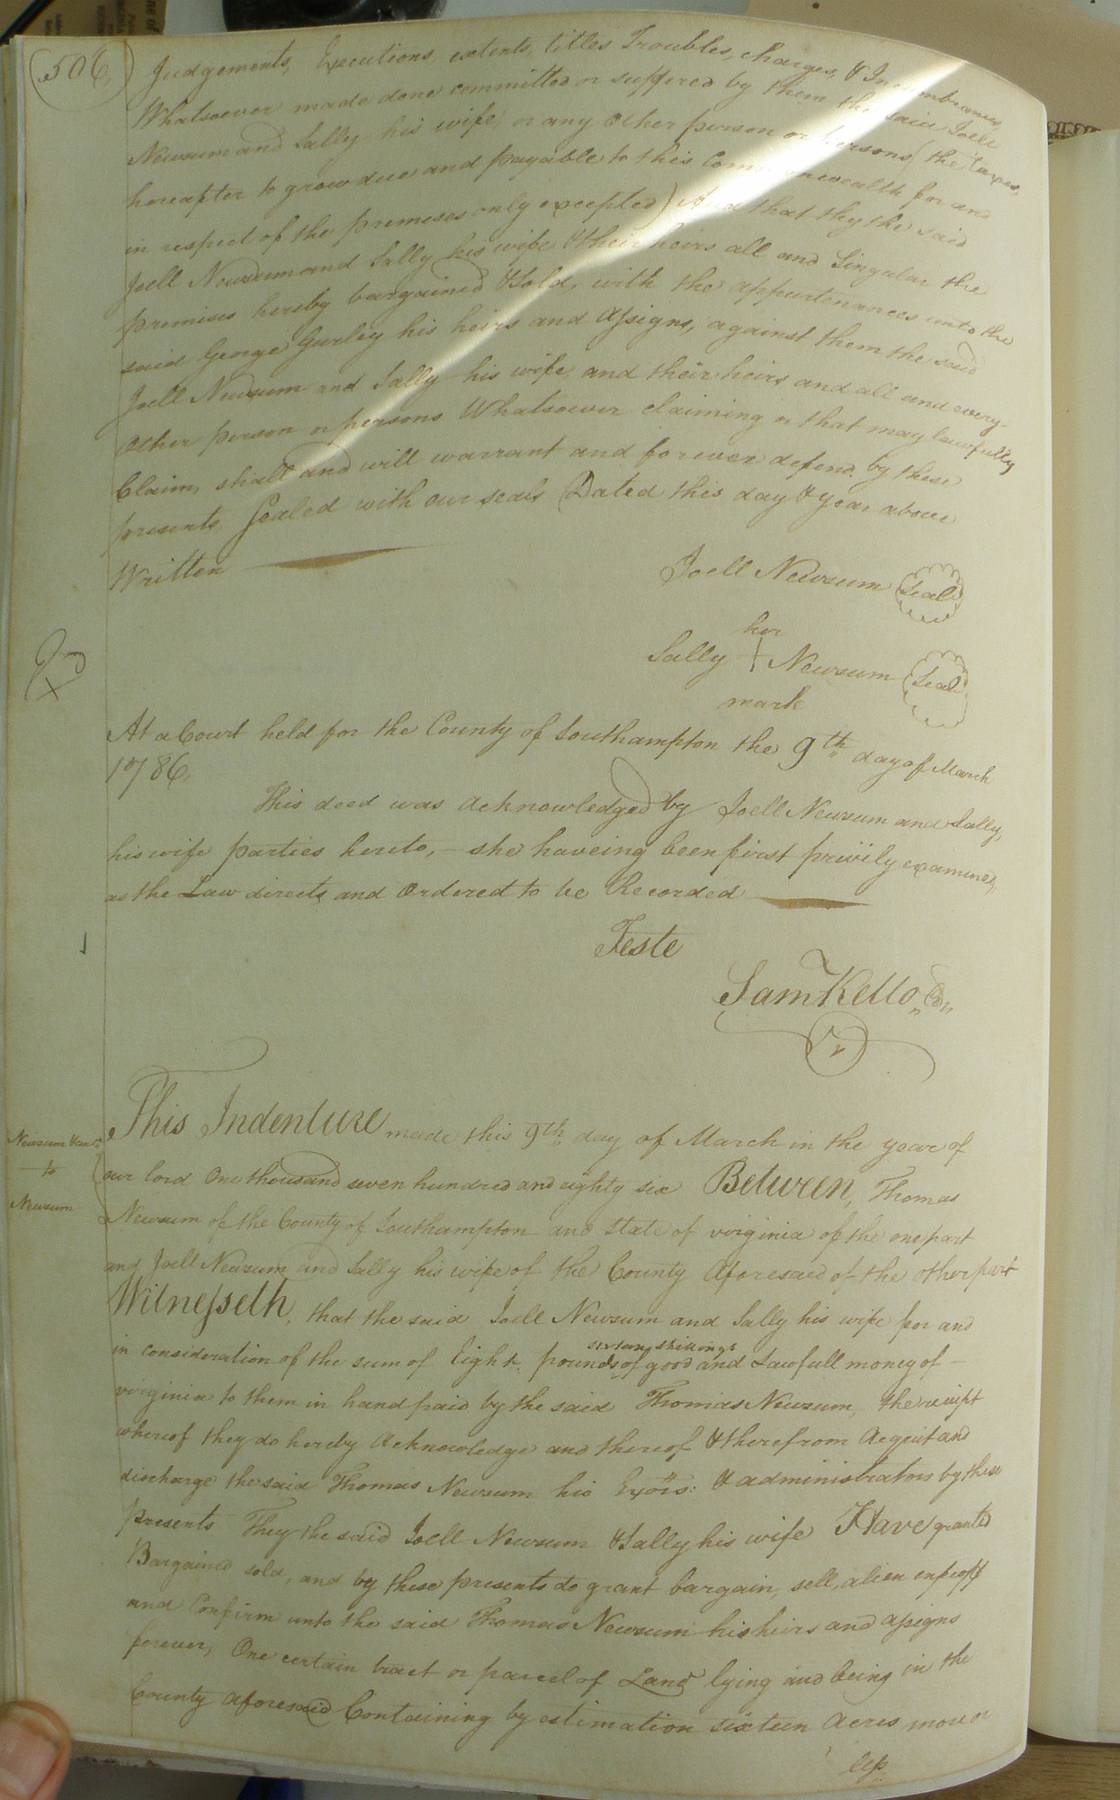 506
Judgements, Executions, extents, titles Troubles, charges, & Incumbrances,
Whatsoever made done committed or suffered by them the said Joell
Newsum and Sally his wife, or any other person or Persons (the taxes,
hereafter to grow due and payable to this Commonwealth for and
in respect of the premeses only excepted) And that thy the said
Joell Newsum and Sally his wife & their heirs all and Singular the
premises hereby bargained & Sold, with the appurtenances unto the
said George Gurley his heirs and assigns, against them the said
Joell Newsum and Sally his wife and their heirs and all and every
other person or persons Whatsoever claiming or that may lawfully
Claim, shall and will warrant and forever defend by these
presents, Sealed with our seals Dated this day & year above
Written
Joell Newsum Seal
her
Sally + Newsum Seal
mark
At a Court held for the County of Southampton the 9th day of March
1786,
This deed was Acknowledged by Joell Newsum and Sally,
his wife parties hereto, - she haveing been first privily examined,
as the Law directs and Ordered to be Recorded
Teste
Sam Kello
Newsum
to
Newsum
This Indenture made this 9th day of March in the year of
our lord One thousand seven hundred and eighty six Between, Thomas
Newsum of the County of Southampton and State of virginia of the one part
and Joell Newsum and Sally his wife of the County Aforesaid of the other part
Witnesseth, that the said Joell Newsum and Sally his wife for and
sixteen shillings
in consideration of the sum of Eight pounds of good and Lawfull money of -
virginia to them in hand paid by the said Thomas Newsum, the receipt
whereof they do hereby Acknowledge and thereof & therefrom Acquit and
discharge the said Thomas Newsum his Exors: & administrators by these
presents They the said Joell Newsum & Sally his wife Have granted
Bargained sold, and by these presents do grant bargain, sell, alien enfeoff
and Confirm unto the said Thomas Newsum his heirs and assigns
forever, One certain tract or parcel of Land lying and being in the
County aforesaid Containing by estimation sixteen Acres more or
less